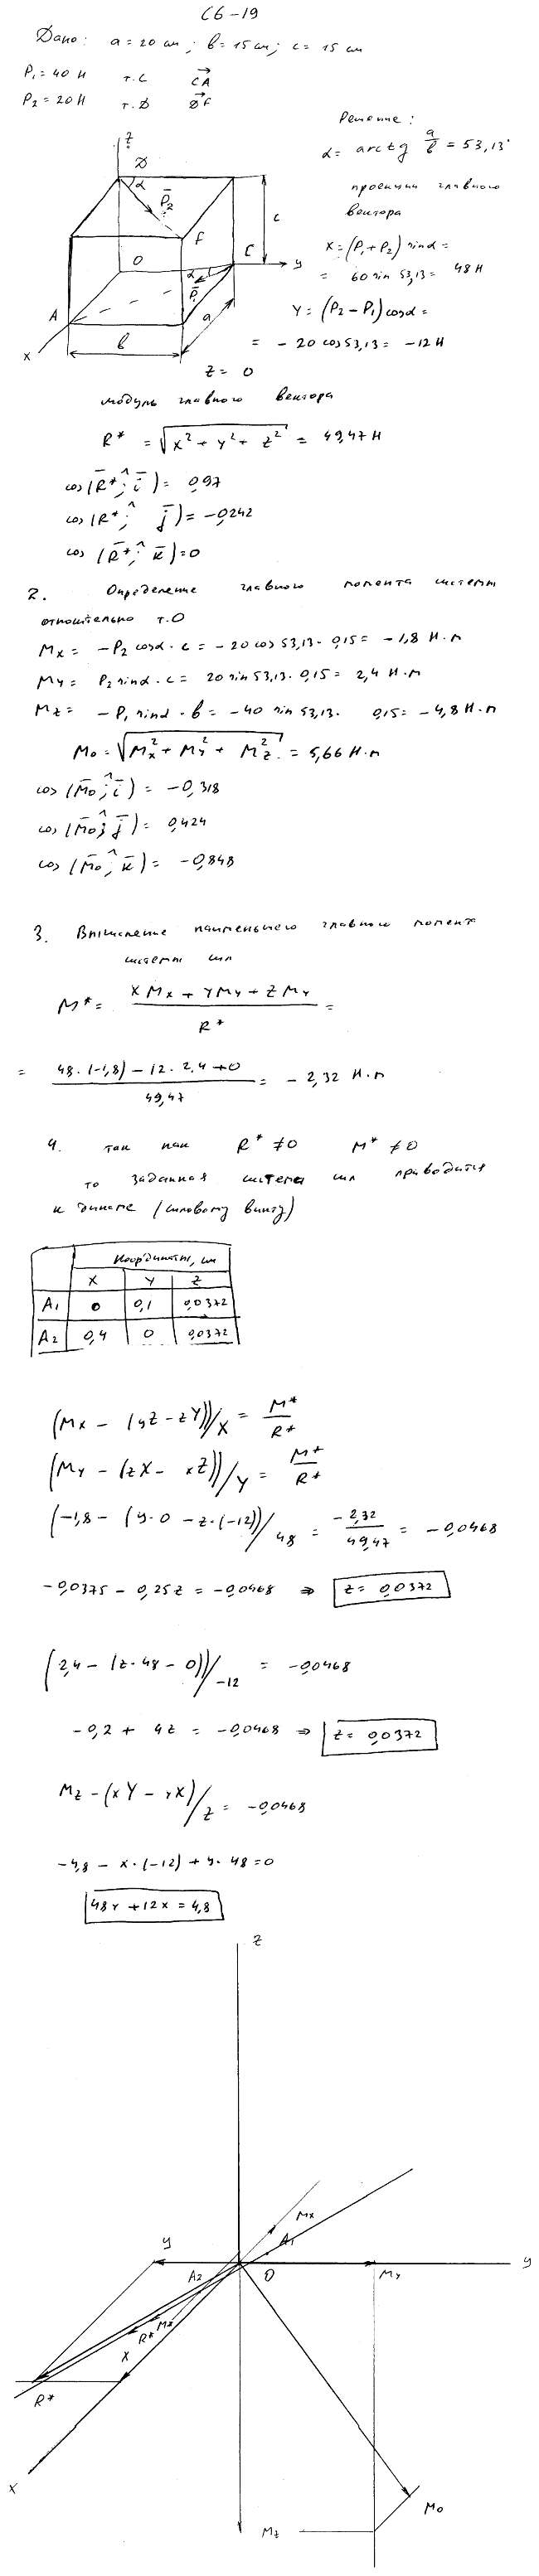 С6-19
Дано: a = 20 см; b = 15 см; c = 15 см
P₁ = 40 Н т.C CA
P₂ = 20 Н т.D DF
Решение:
α = arctg a/b = 53,13°
проекции главного
вектора
X = (P₁ + P₂) sinα =
= 60 sin 53,13 = 48 Н
Y = (P₂ − P₁) cosα =
= − 20 cos 53,13 = −12 Н
Z = 0
z
D
α
P̄₂
F
c
O
C
y
α
P̄₁
A
a
x
b
модуль главного вектора
R* = √(X² + Y² + Z²) = 49,47 Н
cos(R̄*;^ ī) = 0,97
cos(R*;^ j̄) = −0,242
cos(R̄*;^ k̄) = 0
2. Определение главного момента системы
относительно т.O
Mx = −P₂ cosα · c = −20 cos 53,13 · 0,15 = −1,8 Н·м
My = P₂ sinα · c = 20 sin 53,13 · 0,15 = 2,4 Н·м
Mz = −P₁ sinα · b = −40 sin 53,13 · 0,15 = −4,8 Н·м
Mo = √(Mx² + My² + Mz²) = 5,66 Н·м
cos(M̄o;^ ī) = −0,318
cos(M̄o;^ j̄) = 0,424
cos(M̄o;^ k̄) = −0,848
3. Вычисление наименьшего главного момента
системы сил
M* = (X Mx + Y My + Z My) / R* =
= (48·(−1,8) − 12·2,4 + 0) / 49,47 = −2,32 Н·м
4. так как R* ≠ 0 M* ≠ 0
то заданная система сил приводится
к динаме (силовому винту)
Координаты, см
X Y Z
A₁ 0 0,1 0,0372
A₂ 0,4 0 0,0372
(Mx − (yZ − zY))/X = M*/R*
(My − (zX − xZ))/Y = M*/R*
(−1,8 − (y·0 − z·(−12))/48 = −2,32/49,47 = −0,0468
−0,0375 − 0,25z = −0,0468 ⇒ z = 0,0372
(2,4 − (z·48 − 0))/−12 = −0,0468
−0,2 + 4z = −0,0468 ⇒ z = 0,0372
Mz − (xY − yX)/Z = −0,0468
−4,8 − x·(−12) + y·48 = 0
48y + 12x = 4,8
z
Mx
A₁
y
A₂
O
My
y
M*
R*
X
R*
x
Mo
Mz